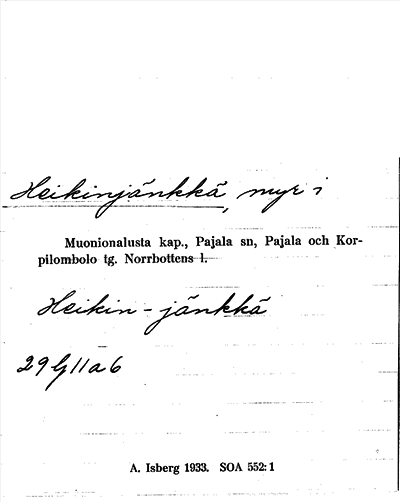 Heikinjänkkä, myr i
Muonionalusta kap., Pajala sn, Pajala och Kor-
pilombolo tg. Norrbottens l.
Heikin-jänkkä
29 G 11 a 6
A. Isberg 1933. SOA 552:1